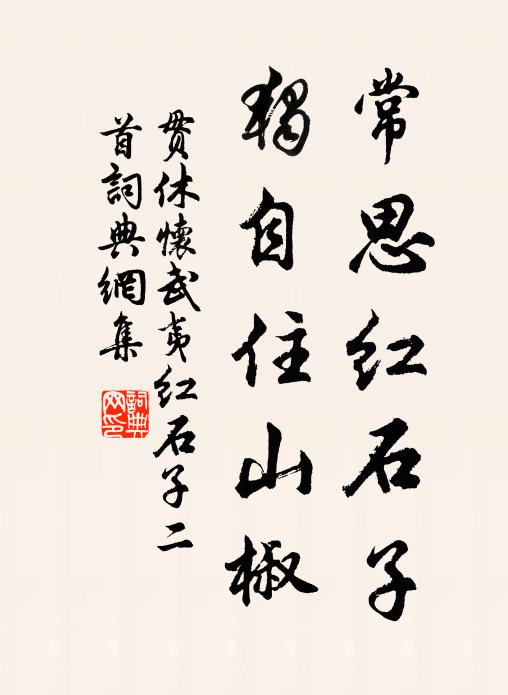 常思红石子
獨自住山椒
贯休懷武夷红石子二
首詞典網集
詞典
网印